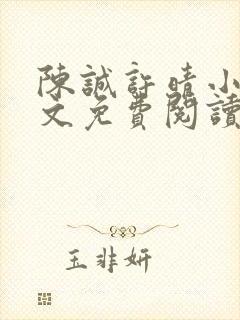 陳誠許晴小
文免費閱讀
玉非妍